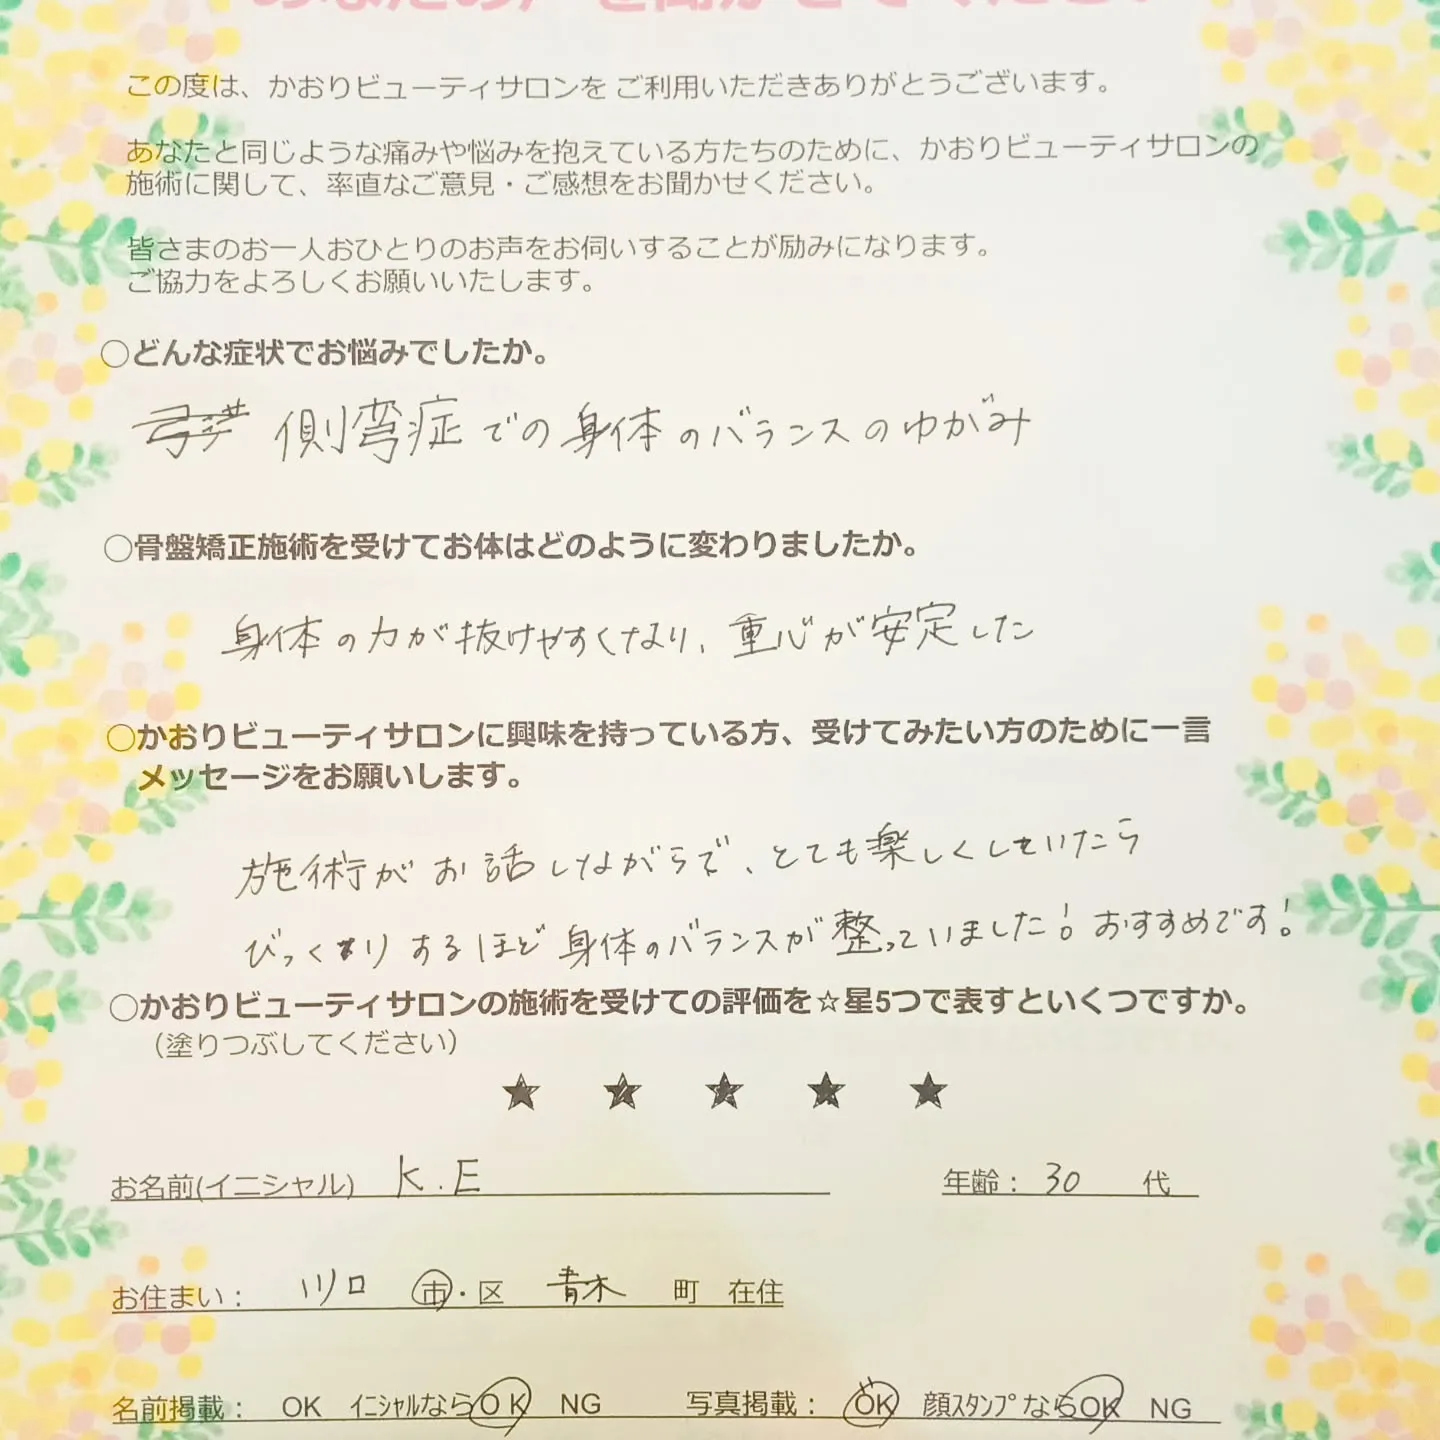 この度は、かおりビューティサロンを ご利用いただきありがとうございます。
あなたと同じような痛みや悩みを抱えている方たちのために、かおりビューティサロンの
施術に関して、率直なご意見・ご感想をお聞かせください。
皆さまのお一人おひとりのお声をお伺いすることが励みになります。
ご協力をよろしくお願いいたします。
○どんな症状でお悩みでしたか。
側弯症での身体のバランスのゆがみ
○骨盤矯正施術を受けてお体はどのように変わりましたか。
身体の力が抜けやすくなり、重心が安定した
○かおりビューティサロンに興味を持っている方、受けてみたい方のために一言
メッセージをお願いします。
施術がお話しながらで、とても楽しくしていたら
びっくりするほど身体のバランスが整っていました！おすすめです！
○かおりビューティサロンの施術を受けての評価を☆星5つで表すといくつですか。
（塗りつぶしてください）
★ ★ ★ ★ ★
お名前(イニシャル) K.E 年齢： 30 代
お住まい： 川口 市・区 青木 町 在住
名前掲載： OK ｲﾆｼｬﾙならOK NG 写真掲載： OK 顔ｽﾀﾝﾌﾟならOK NG